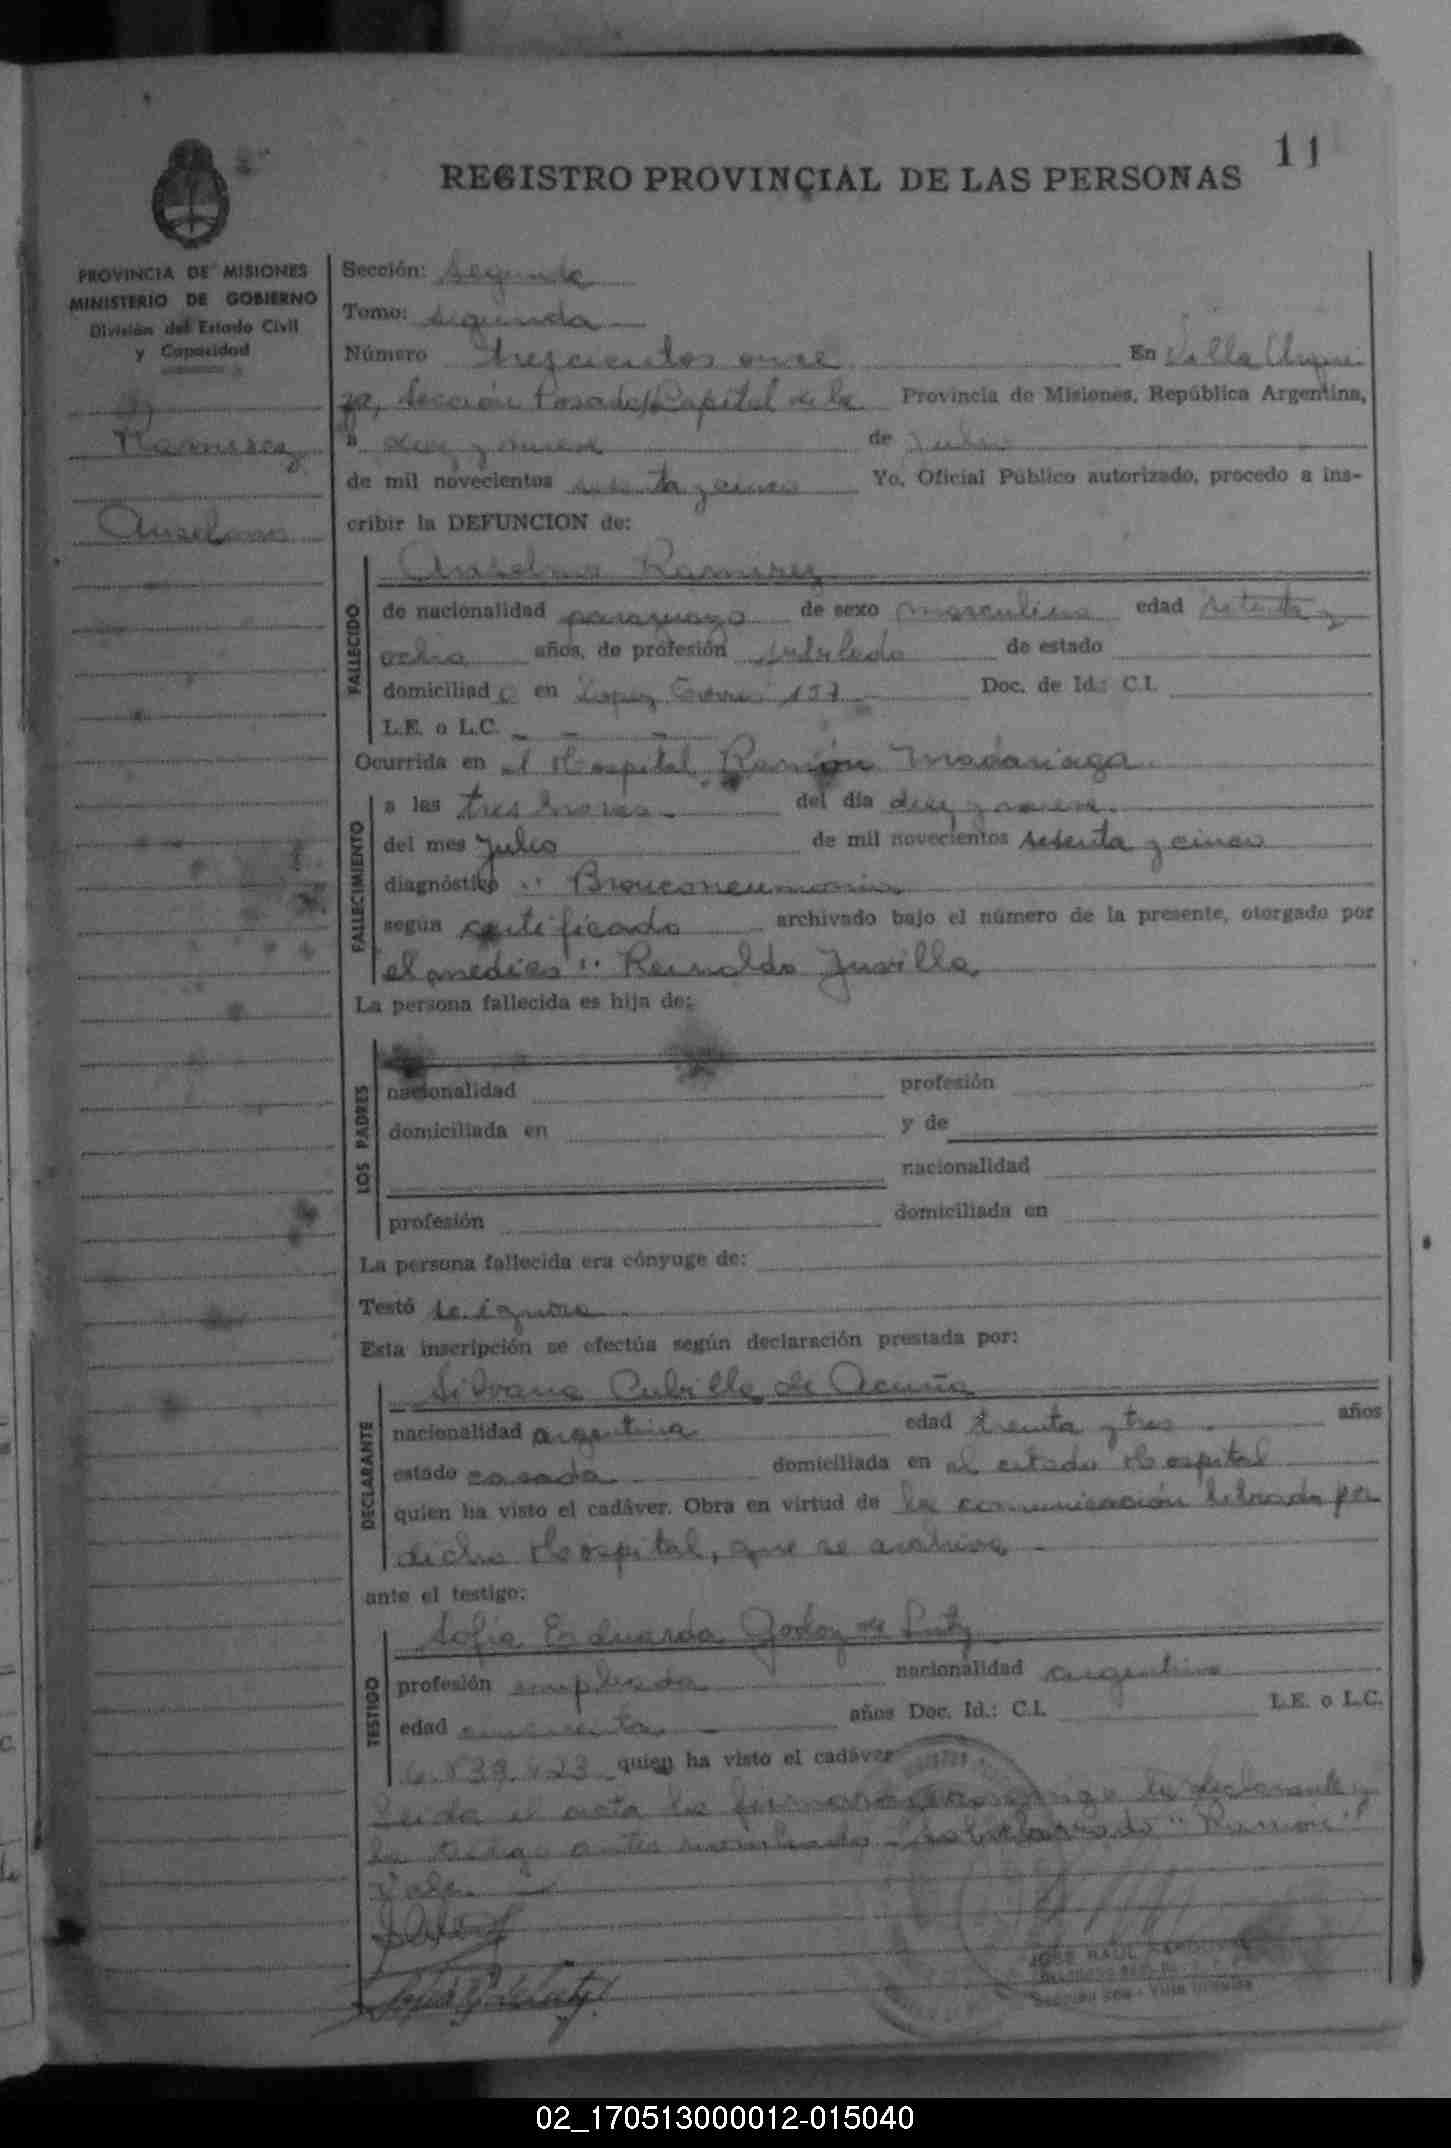 11
REGISTRO PROVINCIAL DE LAS PERSONAS
PROVINCIA DE MISIONES
MINISTERIO DE GOBIERNO
División del Estado Civil
y Capacidad
Ramirez
Anselmo
Sección: Segunda
Tomo: segundo
Número trescientos once En Villa Urqui
za, Sección Posadas Capital de la Provincia de Misiones, República Argentina,
a diez y nueve de Julio
de mil novecientos setenta y cinco Yo, Oficial Público autorizado, procedo a ins-
cribir la DEFUNCION de:
Anselmo Ramirez
FALLECIDO
de nacionalidad paraguayo de sexo masculino edad setenta y
ocho años, de profesión jubilado de estado
domiciliado en Lopez Torres 157 Doc. de Id.: C.I.
L.E. o L.C. - - -
Ocurrida en el Hospital Ramón Madariaga
FALLECIMIENTO
a las tres horas del día diez y nueve
del mes Julio de mil novecientos setenta y cinco
diagnóstico: Bronconeumonia
según certificado archivado bajo el número de la presente, otorgado por
el medico: Reinaldo
La persona fallecida es hija de:
LOS PADRES
nacionalidad profesión
domiciliada en y de
nacionalidad
profesión domiciliada en
La persona fallecida era cónyuge de:
Testó se ignora
Esta inscripción se efectúa según declaración prestada por:
Silvana Cubilla de Acuña
DECLARANTE
nacionalidad argentina edad treinta y tres años
estado casada domiciliada en el citado Hospital
quien ha visto el cadáver. Obra en virtud de la comunicación librada por
dicho Hospital, que se archiva -
ante el testigo:
Sofia Eduarda Godoy de
TESTIGO
profesión empleada nacionalidad argentina
edad cincuenta años Doc. Id.: C.I. L.E. o L.C.
6.839.423 quien ha visto el cadáver
Leida el acta la firmaran conmigo la declarante y
la testigo antes nombrada - Sobreborrado "Ramon"
Vale -
JOSE RAUL
02_170513000012-015040